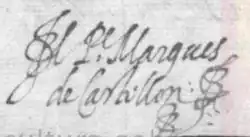 El Pe. Marques
de Castillon